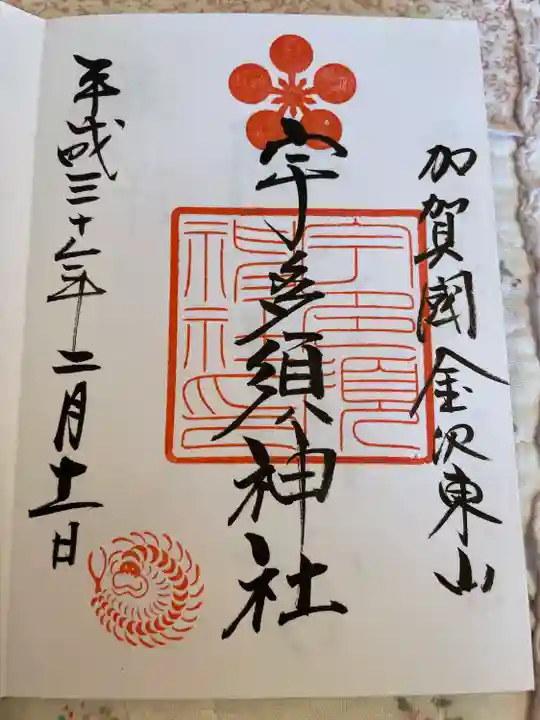 加賀國金沢東山
宇多須神社
平成三十一年二月十一日